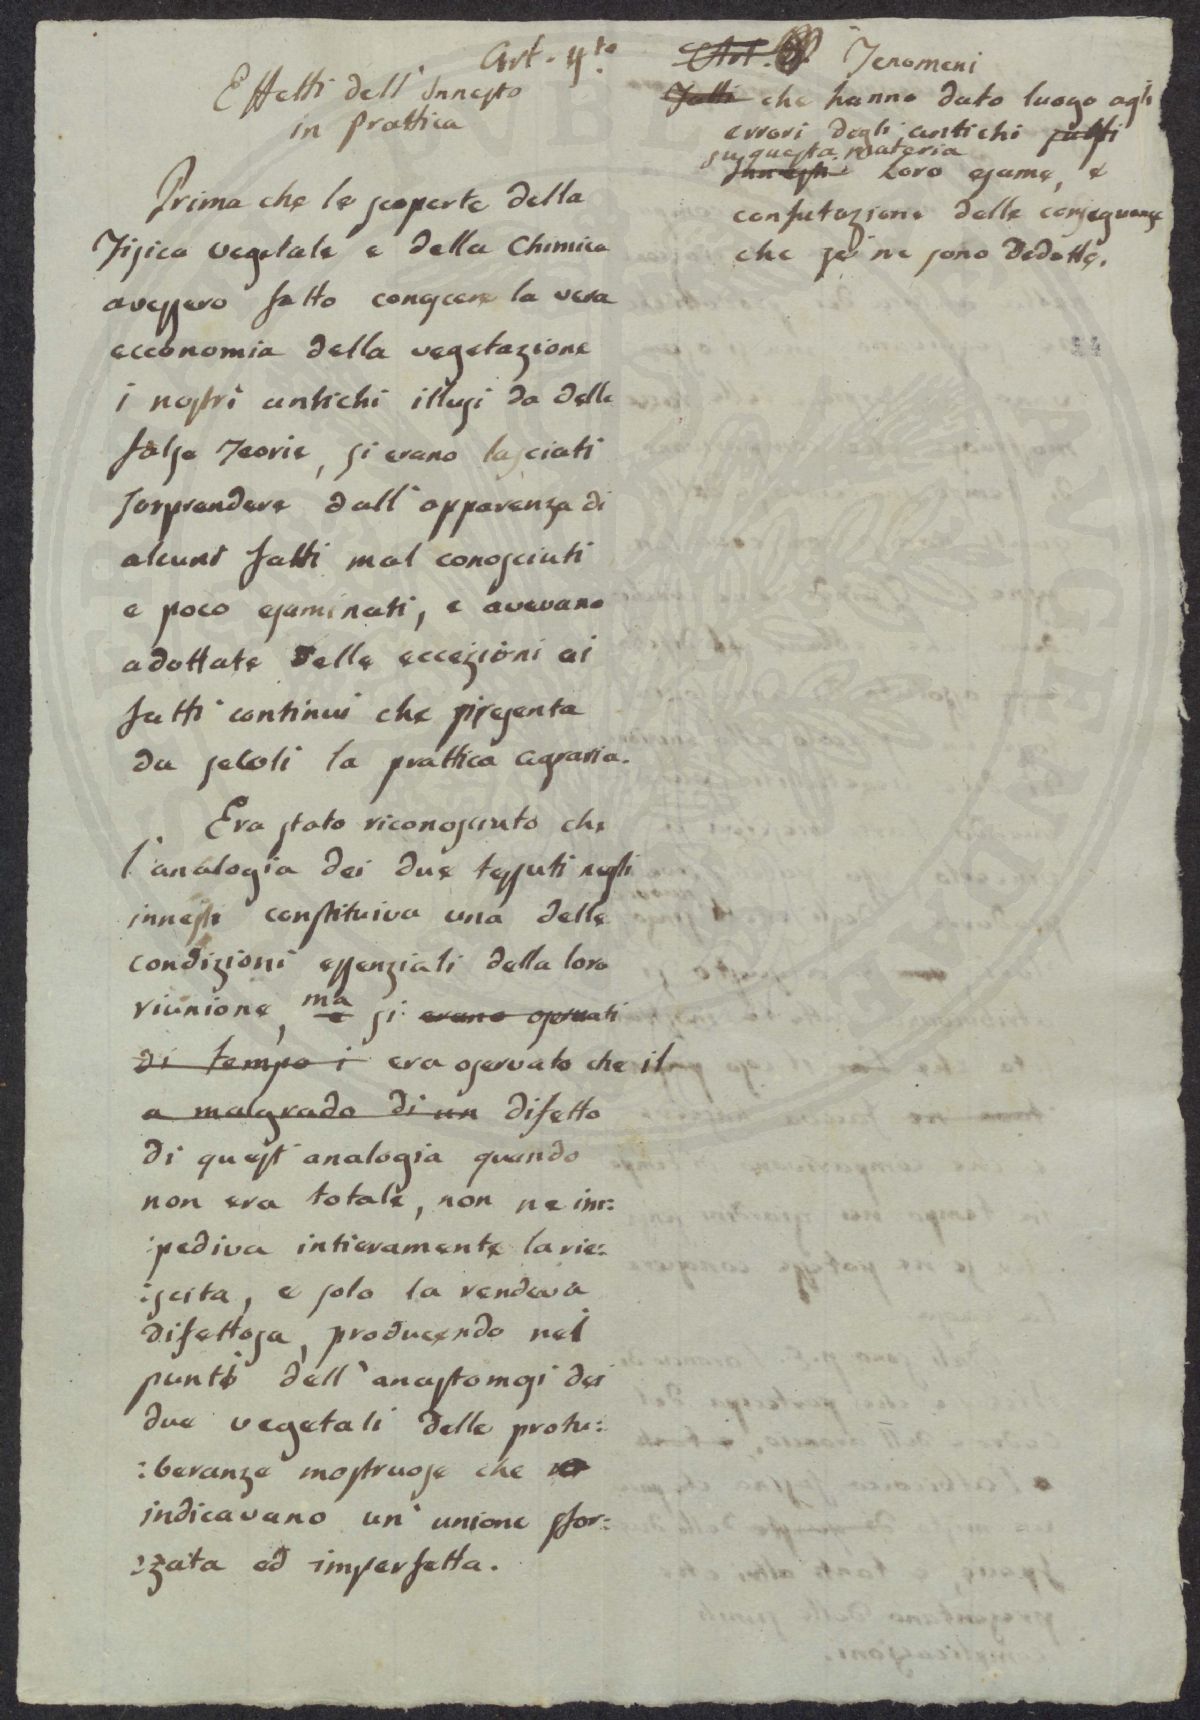 Art. 4.to
Effetti dell'Innesto
in prattica
Prima che le scoperte della
Fisica vegetale e della Chimica
avessero fatto conoscere la vera
ecconomia della vegetazione
i nostri antichi illusi da delle
false Teorie, si erano lasciati
sorprendere dall'apparenza di
alcuni fatti mal conosciuti
e poco esaminati, e avevano
adottate delle eccezioni ai
fatti continui che presenta
da secoli la prattica agraria.
Era stato riconosciuto che
l'analogia dei due tessuti negli
innesti constituiva una delle
condizioni essenziali della loro
riunione, ma si erano operati
di tempo i era oservato che il
a malgrado di un difetto
di quest'analogia quando
non era totale, non ne im:
:pediva intieramente la rie:
:scita, e solo la rendeva
difettosa, producendo nei
punti dell'anastomosi dei
due vegetali delle protu:
:beranze mostruose che
indicavano un'unione sfor:
:zata ed imperfetta.
Art. Fenomeni
Fatti che hanno dato luogo agli
errori degli antichi
su questa materia
Innesti loro esame, e
confutazione delle conseguenze
che se ne sono dedotte.
54